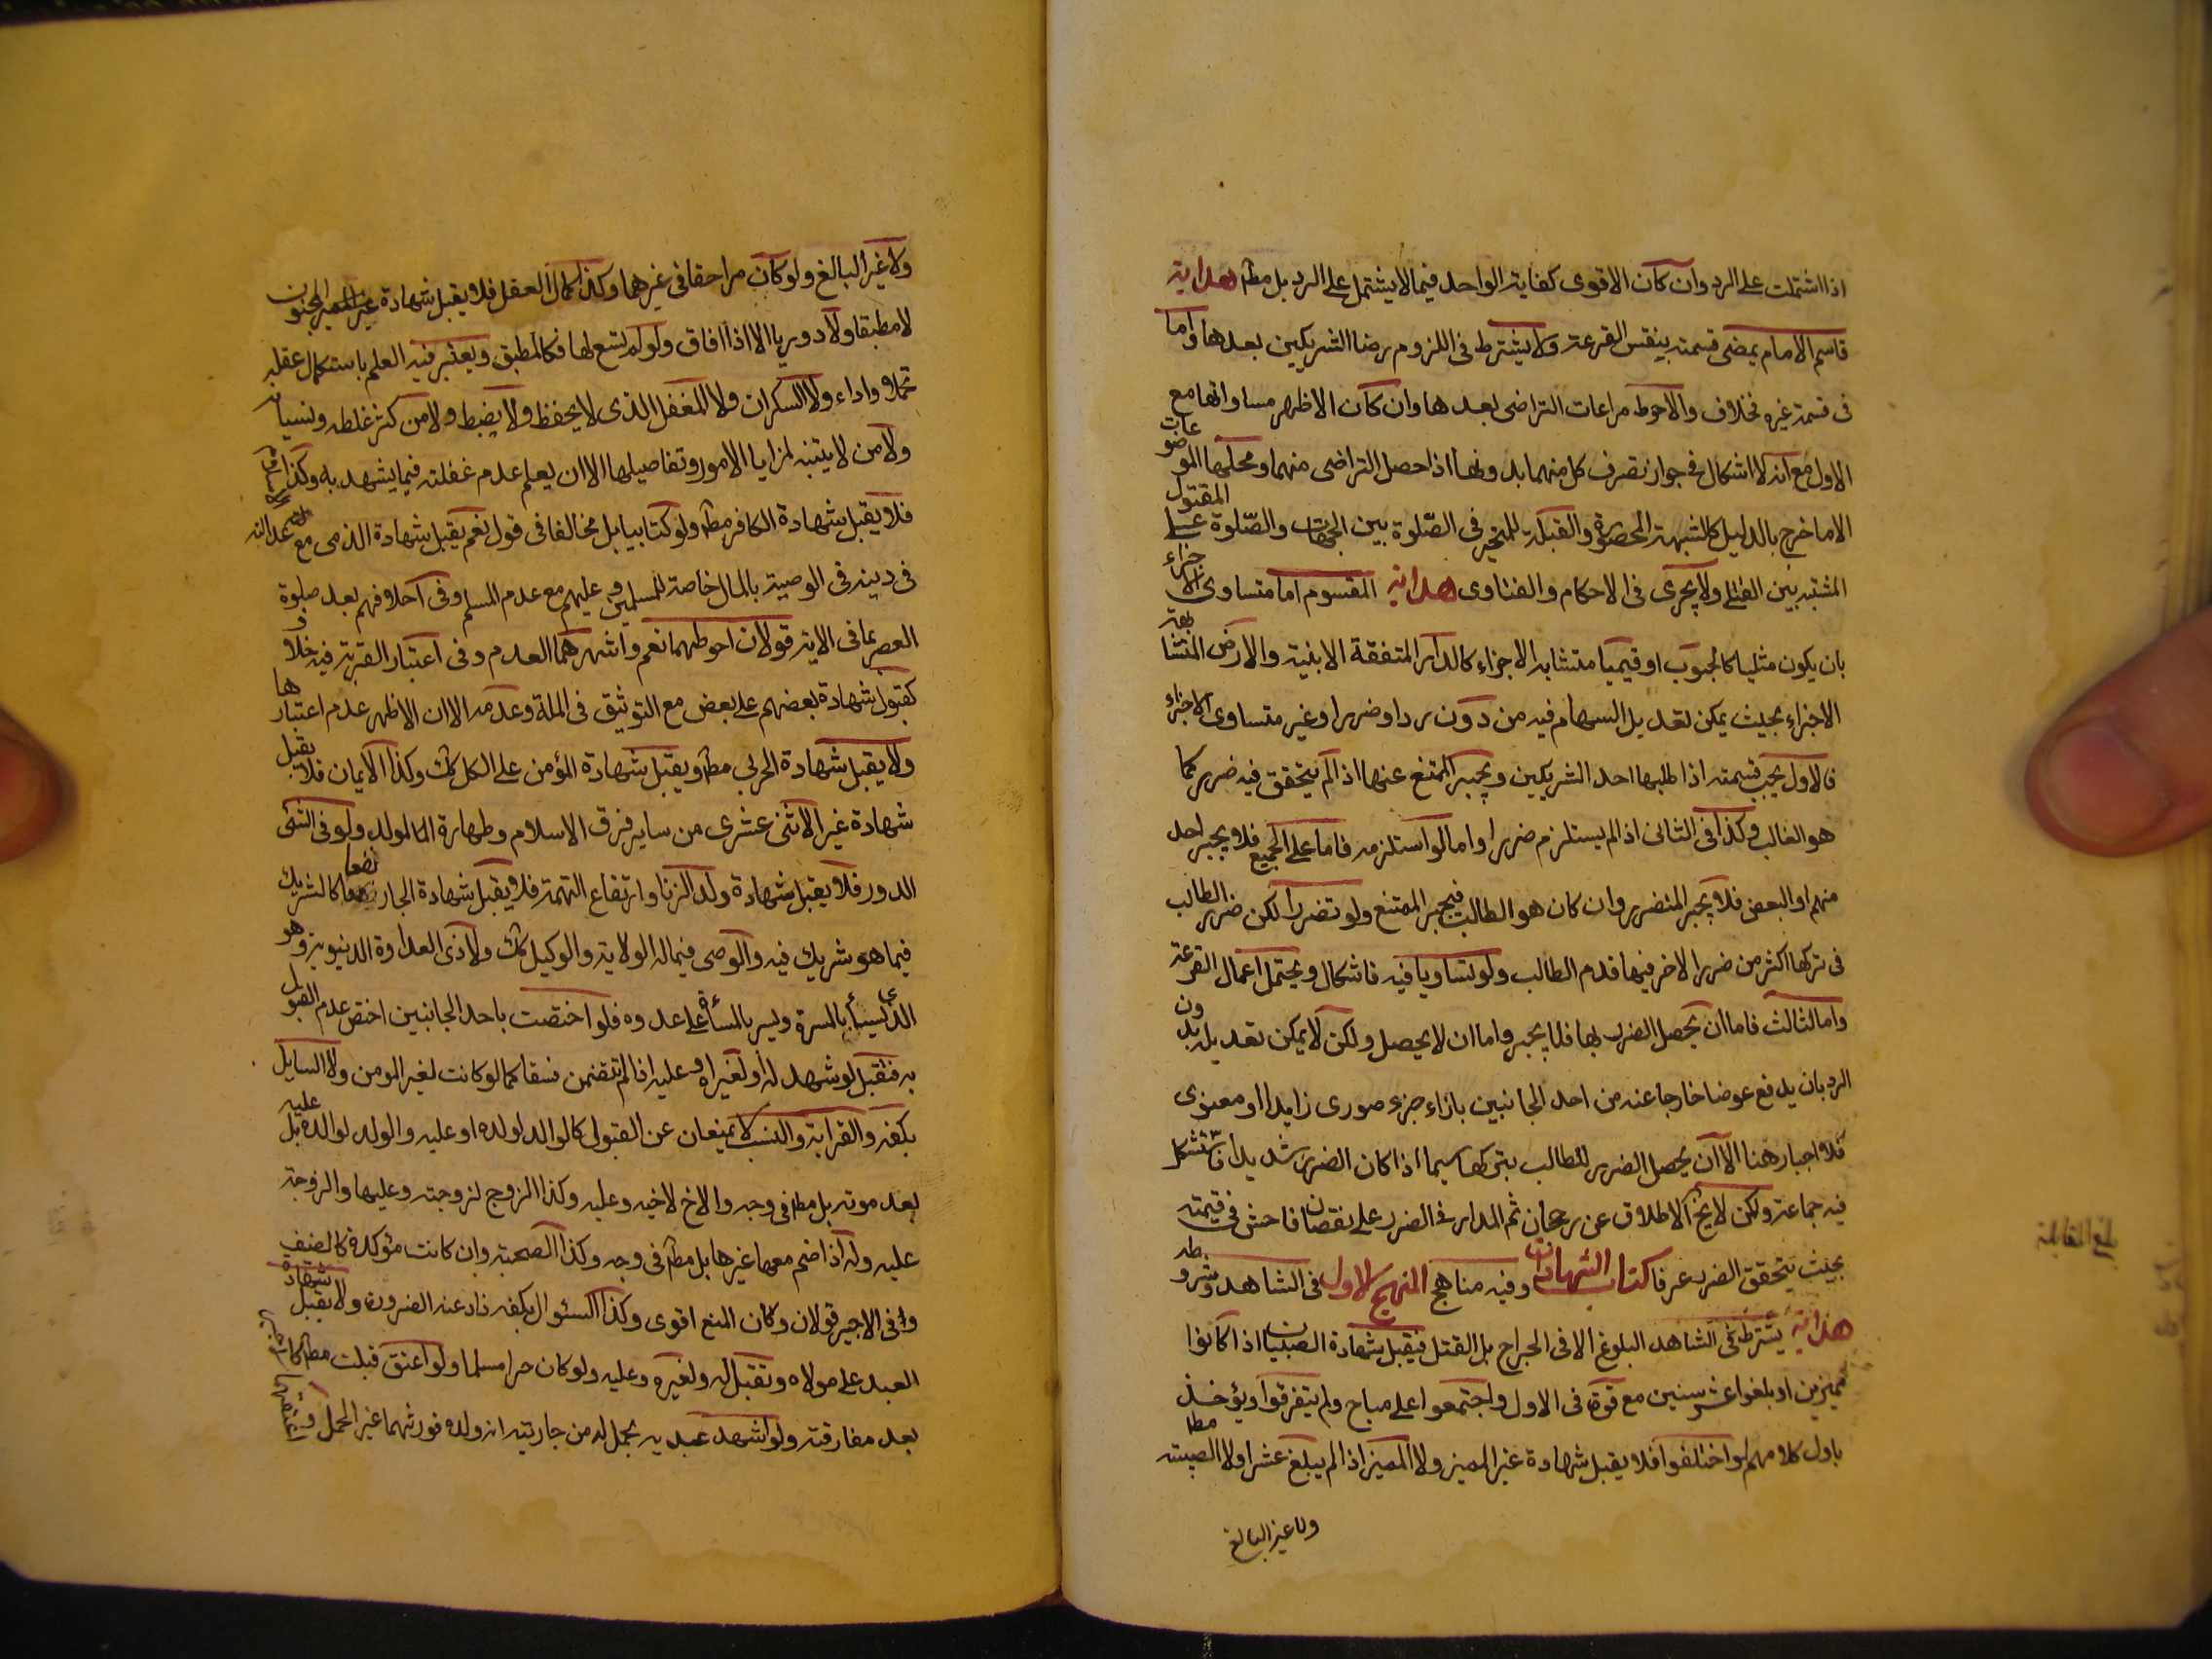 اذا اشتملت على الرد وان كان الاقوى كفاية الواحد فيما لا يشتمل على الرد بل مط هداية
قاسم الامام يمضى قسمته بنفس القرعة ولا يشترط فى اللزوم رضا الشريكين بعدها واما
فى قسمة غيره فخلاف والاحوط مراعات التراضى بعدها وان كان الاظهر مساواتها مع
الاول مع انه لا اشكال فى جواز تصرف كل منهما بدونها اذا حصل التراضى منهما ومحلها الموضوعات
الا ما خرج بالدليل كالشبهة المحصورة والقبلة للمتحير فى الصلوة بين الجهات والصلوة على المقتول
المشتبه بين القتلى ولا يجرى فى الاحكام والفتاوى هداية المقسوم اما متساوى الاجزاء
بان يكون مثليا كالحبوب او قيميا متشابه الاجزاء كالدار المتفقة الابنية والارض المتشابهة
الاجزاء بحيث يمكن تعديل السهام فيه من دون رد او ضرر او غير متساوى الاجزاء
فالاول يجب قسمته اذا طلبها احد الشريكين ويجبر الممتنع عنها اذا لم يتحقق فيه ضرر كما
هو الغالب وكذا فى الثانى اذا لم يستلزم ضررا واما لو استلزمه فاما على الجميع فلا يجبر احد
منهم او البعض فلا يجبر المتضرر وان كان هو الطالب فيجبر الممتنع ولو تضرر لكن ضرر الطالب
فى تركها اكثر من ضرر الاخر فيها قدم الطالب ولو تساويا فيه فاشكال ويحتمل اعمال القرعة
واما الثالث فاما ان يحصل الضرر بها فلا يجبر واما ان لا يحصل ولكن لا يمكن تعديله بدون
الرد بان يدفع عوضا خارجا عنه من احد الجانبين بازاء جزء صورى زايدا او معنوى
فلا اجبار هنا الا ان يحصل الضرر للطالب بتركها سيما اذا كان الضرر شديدا فاستشكل
فيه جماعة ولكن لا يخ الاطلاق عن رجحان ثم المدار فى الضرر على نقصان فاحش فى قيمته
بحيث يتحقق الضرر عرفا كتاب الشهادات وفيه مناهج المنهج الاول فى الشاهد وشروطه
هداية يشترط فى الشاهد البلوغ الا فى الجراح بل القتل فيقبل شهادة الصبيان اذا كانوا
مميزين او بلغوا عشر سنين مع قوة فى الاول واجتمعوا على مباح ولم يتفرقوا ويؤخذ
باول كلامهم لو اختلفوا فلا يقبل شهادة غير المميز ولا المميز اذا لم يبلغ عشرا ولا الصبية مطا
ولا غير البالغ
بلغ المقابلة
ولا غير البالغ ولو كان مراحقا فى غيرهما وكذا كمال العقل فلا يقبل شهادة المجنون
لا مطبقا ولا دوريا الا اذا افاق ولو لم تسع لها فكالمطبق ويعتبر فيه العلم باستكمال عقله
تحملا واداء ولا السكران ولا المغفل الذى لا يحفظ ولا يضبط ولا من كثر غلطه ونسيانه
ولا من لا يتنبه لمزايا الامور وتفاصيلها الا ان يعلم عدم غفلته فيما يشهد به وكذا
فلا يقبل شهادة الكافر مط ولو كتابيا بل مخالفا فى قول نعم يقبل شهادة الذمى مع عدالته
فى دينه فى الوصية بالمال خاصة للمسلمين وعليهم مع عدم المسلم وفى احلافهم بعد صلوة
العصر بما فى الاية قولان احوطهما نعم واشهرهما العدم وفى اعتبار الغربة فيه خلاف
كقبول شهادة بعضهم على بعض مع التوثيق فى الملة وعدمه الا ان الاظهر عدم اعتبارها
ولا يقبل شهادة الحربى مط ويقبل شهادة المؤمن على الكل كك وكذا الايمان فلا يقبل
شهادة غير الاثنى عشرى من ساير فرق الاسلام وطهارة المولد ولو فى الشئ
الدور فلا يقبل شهادة ولد الزنا وارتفاع التهمة فلا يقبل شهادة الجار نفعا كالشريك
فيما هو شريك فيه والوصى فيما له الولاية والوكيل كك ولا ذى العداوة الدنيوية وهو
الذى يساء بالمسرة ويسر بالمساءة على عدوه فلو اختصت باحد الجانبين اختص عدم القبول
به فتقبل لو شهد له او لغيره وعليه اذا لم تتضمن فسقا كما لو كانت لغير المومن ولا السايل
بكفه والقرابة والنسب لا يمنعان عن القبول كالوالد لولده او عليه والولد لوالده بل عليه
بعد موته بل مط فى وجه والاخ لاخيه وعليه وكذا الزوج لزوجته وعليها والزوجة
عليه وله اذا ضم معها غيرها بل مط فى وجه وكذا الصحبة وان كانت مؤكدة كالضيف
وفى الاجير قولان وكان المنع اقوى وكذا السئوال بكفه نادا عند الضرورة ولا يقبل شهادة
العبد على مولاه وتقبل له ولغيره وعليه ولو كان حرا مسلما ولو اعتق قبلت مط
بعد مفارقته ولو اشهد عبديه بحمل له من جاريته انه ولده فورثهما غير الحمل